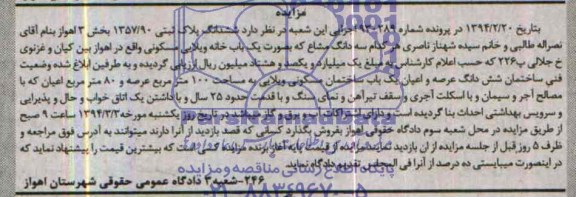 مزایده
بتاریخ ۱۳۹۴/۲/۲۰ در پرونده شماره اجرایی این شعبه در نظر دارد ششدانگ پلاک ثبتی ۱۳۵۷/۹۰ بخش ۳ اهواز بنام آقای
نصراله طالبی و خانم سیده شهناز ناصری هر کدام سه دانگ مشاع که بصورت یک باب خانه ویلایی مسکونی واقع در اهواز بین کیان و غزنوی
خ جلالی پ۲۲۶ که حسب اعلام کارشناس به مبلغ یک میلیارد و یکصد و هشتاد میلیون ریال ارزیابی گردیده و به طرفین ابلاغ شده وضعیت
فنی ساختمان شش دانگ عرصه و اعیان یک باب ساختمان مسکونی ویلایی به مساحت ۱۰۰ متر مربع عرصه و ۸۰ متر مربع اعیان که با
مصالح آجر و سیمان و با اسکلت آجری و سقف تیرآهن و نمای سنگ و با قدمت حدود ۲۵ سال و با داشتن یک اتاق خواب و حال و پذیرایی
و سرویس بهداشتی احداث بنا گردیده است و دارای اشتراکات آب و برق و گاز در تاریخ روز یکشنبه مورخه ۱۳۹۴/۳/۳ ساعت ۹ صبح
از طریق مزایده در محل شعبه سوم دادگاه حقوقی اهواز بفروش بگذارد کسانی که قصد بازدید از آنرا دارند میتوانند به آدرس فوق مراجعه و
ظرف ۵ روز قبل از جلسه مزایده از ان بازدید نمایند مزایده از قیمت پایه آغاز برنده مزایده کسی است که بیشترین قیمت را پیشنهاد نماید که
در اینصورت میبایستی ده درصد از آنرا فی المجلس تقدیم دادگاه نماید
۲۴۶-شعبه ۳ دادگاه عمومی حقوقی شهرستان اهواز
پایگاه اطلاع رسانی مناقصه و مزایده
۰۲۱-۸۸۳۴۹۶۷۰-۵